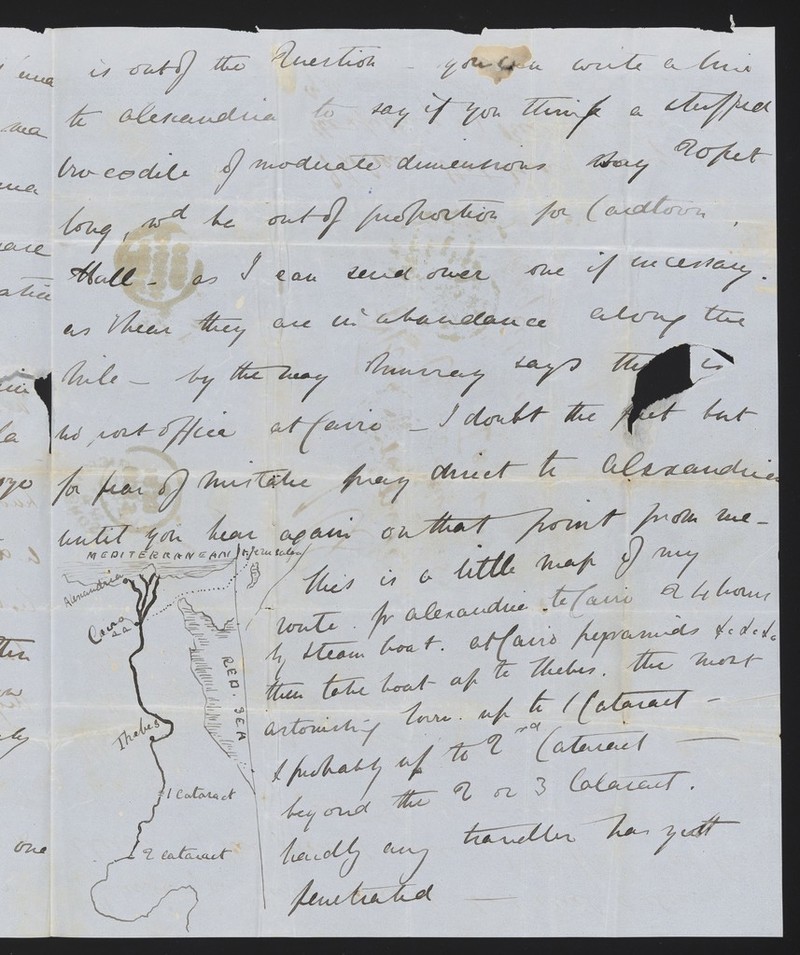 is out of the Question - you can write a line
to alexandria to say if you think a stuffed
crocodile of moderate dimensions say 20 feet
long, wd be out of proportion for Castletown
Hall - as I can send over one if necessary.
as I hear they are in abundance along the
Nile - by the way Murray says there is
no post office at Cairo - I doubt the fact but
for fear of mistake pray direct to Alexandria
until you hear again on that point from me -
this is a little map of my
route. fr alexandria to Cairo 24 hours
by steam boat. at Cairo pyramids &c &c &c
then take boat up to Thebes. the most
astonishing town. up to 1 Cataract -
& probably up to 2nd Cataract -
beyond the 2 or 3 Cataract.
hardly any traveller has yett
penetrated -
MEDITERRANEAN
Jerusalem
Alexandria
Cairo
RED. SEA
Thebes
1 cataract
2 cataract
ma
ma
are
la
one